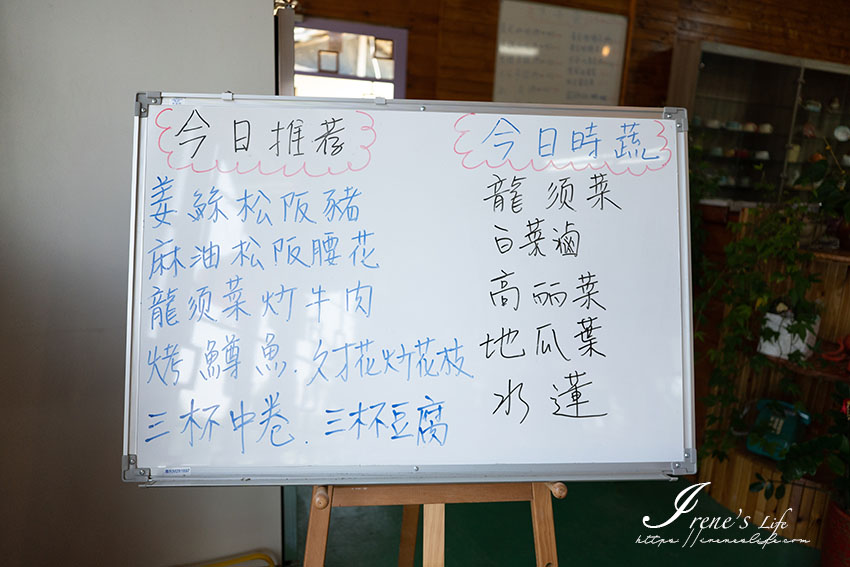 今日推荐
姜絲松阪豬
麻油松阪腰花
龍须菜炒牛肉
烤鱒魚.
炒花枝
三杯中卷.三杯豆腐
今日時蔬
龍须菜
白菜滷
高丽菜
地瓜葉
水蓮
Irene's Life
https://ireneslife.com